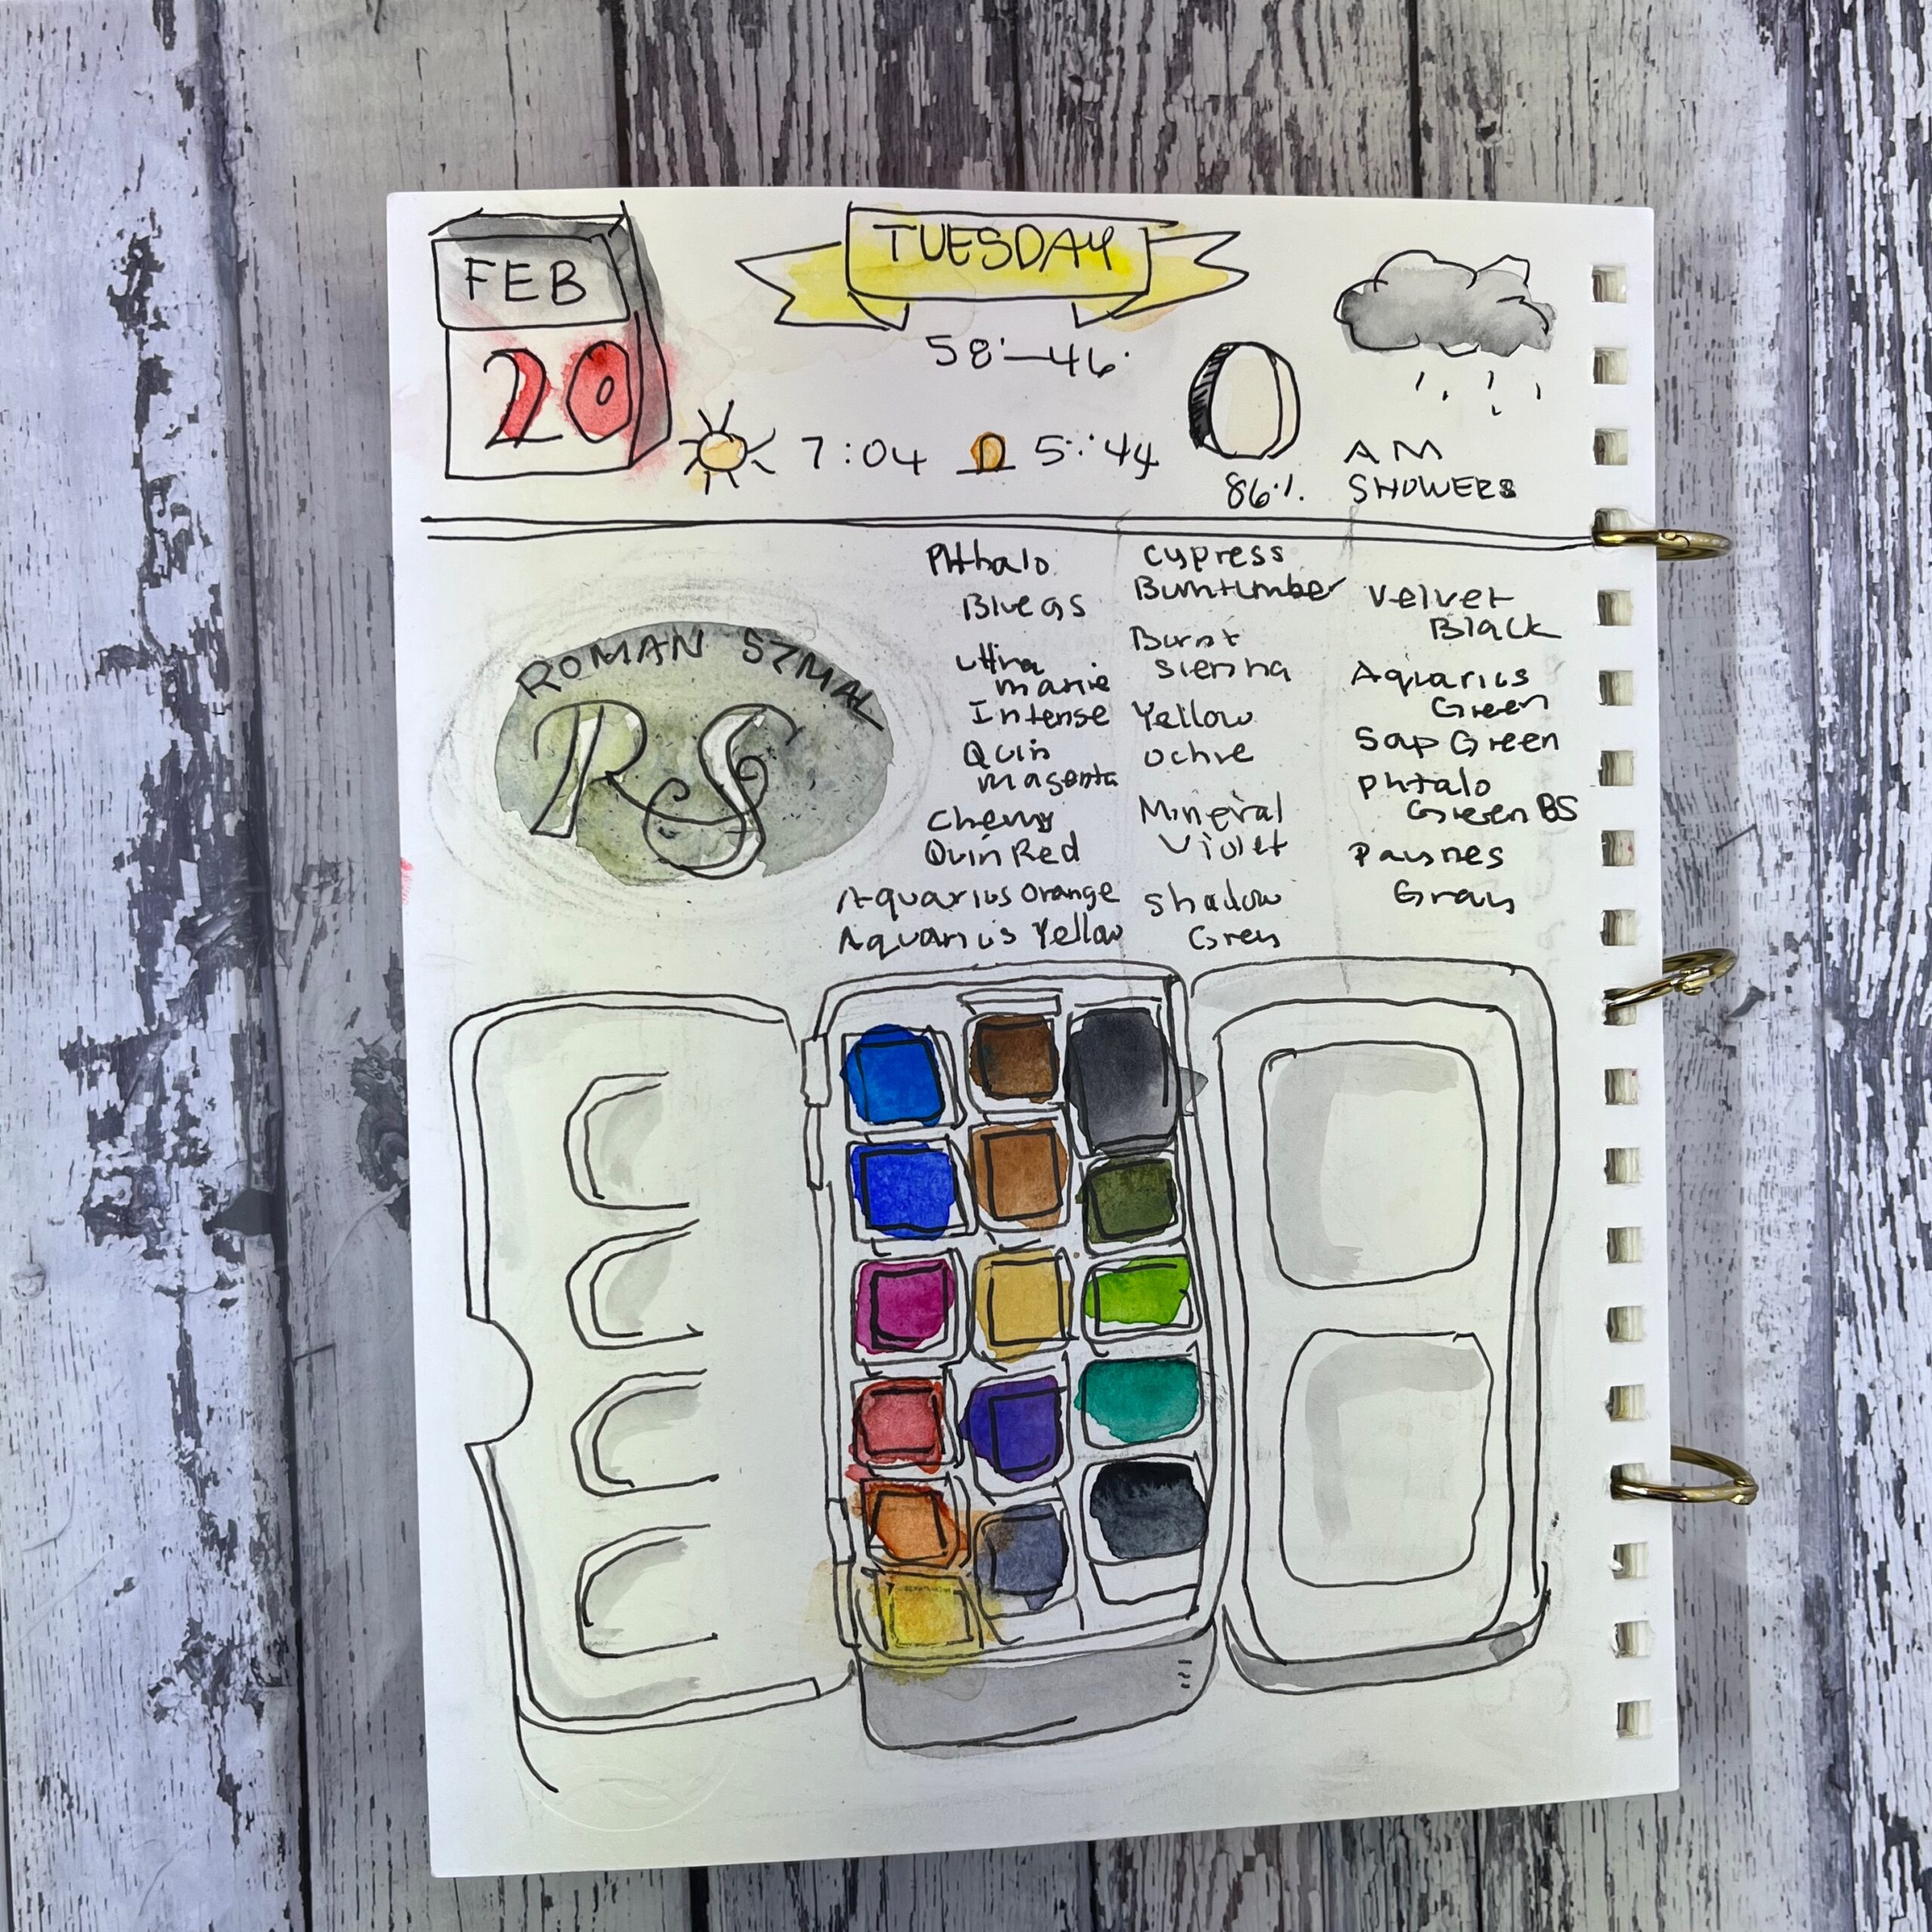 FEB
20
TUESDAY
58°—46°
7:04
5:44
86%
AM
SHOWERS
ROMAN SZMAL
RS
Phthalo
Blue GS
Ultra
marine
Intense
Quin
magenta
Cherry
Quin Red
Aquarius Orange
Aquarius Yellow
Cypress
Burnt umber
Burnt
sienna
Yellow
ochre
Mineral
Violet
Shadow
Grey
Velvet
Black
Aquarius
Green
Sap Green
Phtalo
Green BS
Paynes
Gray